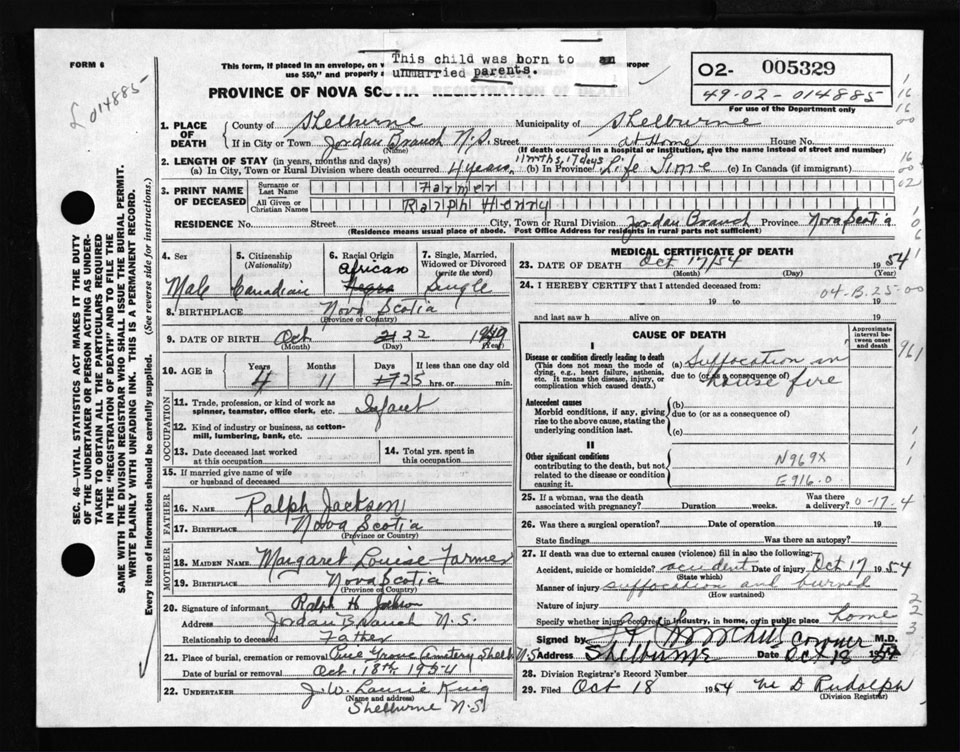 FORM 6
£ 014885
This form, if placed in an envelope, on
use $50," and properly
This child was born to an
unmarried parents.
roper
PROVINCE OF NOVA SCOTIA REGISTRATION OF DEATH
02- 005329
49-02-014885
For use of the Department only
1. PLACE OF DEATH
County of Shelburne Municipality of Shelburne
If in City or Town Jordan Branch N.S. Street at Home House No.
(Name) (If death occurred in a hospital or institution, give the name instead of street and number)
2. LENGTH OF STAY (in years, months and days)
(a) In City, Town or Rural Division where death occurred 4 years, 11 mths, 17 days (b) In Province Life Time (c) In Canada (if immigrant)
3. PRINT NAME OF DECEASED
Surname or Last Name Farmer
All Given or Christian Names Ralph Henry
RESIDENCE No. Street City, Town or Rural Division Jordan Branch Province Nova Scotia
(Residence means usual place of abode. Post Office Address for residents in rural parts not sufficient)
SEC. 46—VITAL STATISTICS ACT MAKES IT THE DUTY
OF THE UNDERTAKER OR PERSON ACTING AS UNDER-
TAKER TO OBTAIN ALL THE PARTICULARS REQUIRED
IN THE "REGISTRATION OF DEATH" AND TO FILE THE
SAME WITH THE DIVISION REGISTRAR WHO SHALL ISSUE THE BURIAL PERMIT.
WRITE PLAINLY WITH UNFADING INK. THIS IS A PERMANENT RECORD.
Every item of information should be carefully supplied. (See reverse side for instructions.)
4. Sex Male
5. Citizenship (Nationality) Canadian
6. Racial Origin African Negro
7. Single, Married, Widowed or Divorced (write the word) Single
8. BIRTHPLACE Nova Scotia
(Province or Country)
9. DATE OF BIRTH Oct 22 1949
(Month) (Day) (Year)
10. AGE in Years Months Days If less than one day
4 11 25 hrs. or min.
OCCUPATION
11. Trade, profession, or kind of work as
spinner, teamster, office clerk, etc. Infant
12. Kind of industry or business, as cotton-
mill, lumbering, bank, etc.
13. Date deceased last worked
at this occupation
14. Total yrs. spent in
this occupation
15. If married give name of wife
or husband of deceased
FATHER
16. NAME Ralph Jackson
17. BIRTHPLACE Nova Scotia
(Province or Country)
MOTHER
18. MAIDEN NAME Margaret Louise Farmer
19. BIRTHPLACE Nova Scotia
(Province or Country)
20. Signature of informant Ralph H Jackson
Address Jordan Branch N.S.
Relationship to deceased Father
21. Place of burial, cremation or removal Pine Grove Cemetery Shelb N.S
Date of burial or removal Oct. 18th, 1954
22. UNDERTAKER J. W. Laurie King
(Name and address)
Shelburne N.S
MEDICAL CERTIFICATE OF DEATH
23. DATE OF DEATH Oct 17/54 1954
(Month) (Day) (Year)
24. I HEREBY CERTIFY that I attended deceased from:
04-B.25-00
19 to 19
and last saw h alive on 19
CAUSE OF DEATH
Approximate interval between onset and death
I
Disease or condition directly leading to death
(This does not mean the mode of
dying, e.g., heart failure, asthenia,
etc. It means the disease, injury, or
complication which caused death.)
(a) Suffocation in
due to (or as a consequence of)
house fire
961
Antecedent causes
Morbid conditions, if any, giving
rise to the above cause, stating the
underlying condition last.
(b)
due to (or as a consequence of)
(c)
II
Other significant conditions
contributing to the death, but not
related to the disease or condition
causing it.
N969X
E916.0
25. If a woman, was the death
associated with pregnancy? Duration weeks. Was there a delivery?
0-17-4
26. Was there a surgical operation? Date of operation 19
State findings Was there an autopsy?
27. If death was due to external causes (violence) fill in also the following:
Accident, suicide or homicide? accident Date of injury Oct 17 1954
(State which)
Manner of injury suffocation and burned
(How sustained)
Nature of injury
Specify whether injury occurred in industry, in home, or in public place home
Signed by Coroner M.D.
Address Shelburne Date Oct 18 1954
28. Division Registrar's Record Number
29. Filed Oct 18 1954 M D Rudolph
(Division Registrar)